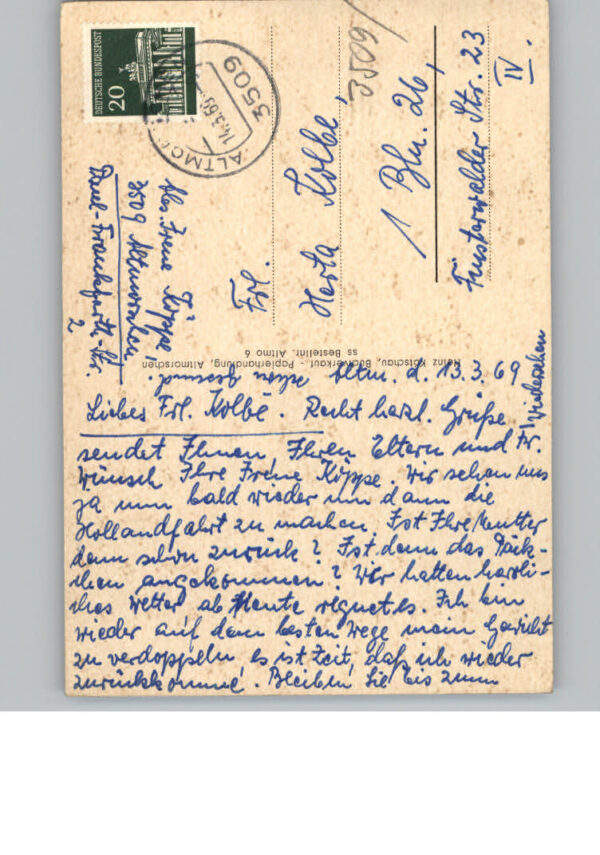 DEUTSCHE BUNDESPOST
20
3509
14.3.69
3509
Abs. Irene Köppe,
3509 Altmorschen
Paul-Frankfurth-Str.
2
Frl.
Herta Kolbe,
1 Bln. 26,
Finsterwalder Str. 23
IV.
Heinz Kotschau, Buchverkauf. - Papierhandlung, Altmorschen
ss Bestellnr. Altmo 6
Altm. d. 13.3.69
Liebes Frl. Kolbe. Recht herzl. Grüße
sendet Ihnen, Ihren Eltern und Fr.
Wünsch Ihre Irene Köppe. Wir sehen uns
ja nun bald wieder um dann die
Hollandfahrt zu machen. Ist Ihre Mutter
denn schon zurück? Ist denn das Päck-
chen angekommen? Wir hatten herrli-
ches Wetter ab Heute regnet es. Ich bin
wieder auf dem besten Wege mein Gewicht
zu verdoppeln, es ist Zeit, daß ich wieder
zurückkomme. Bleiben Sie bis zum
Wiedersehen
schön gesund.